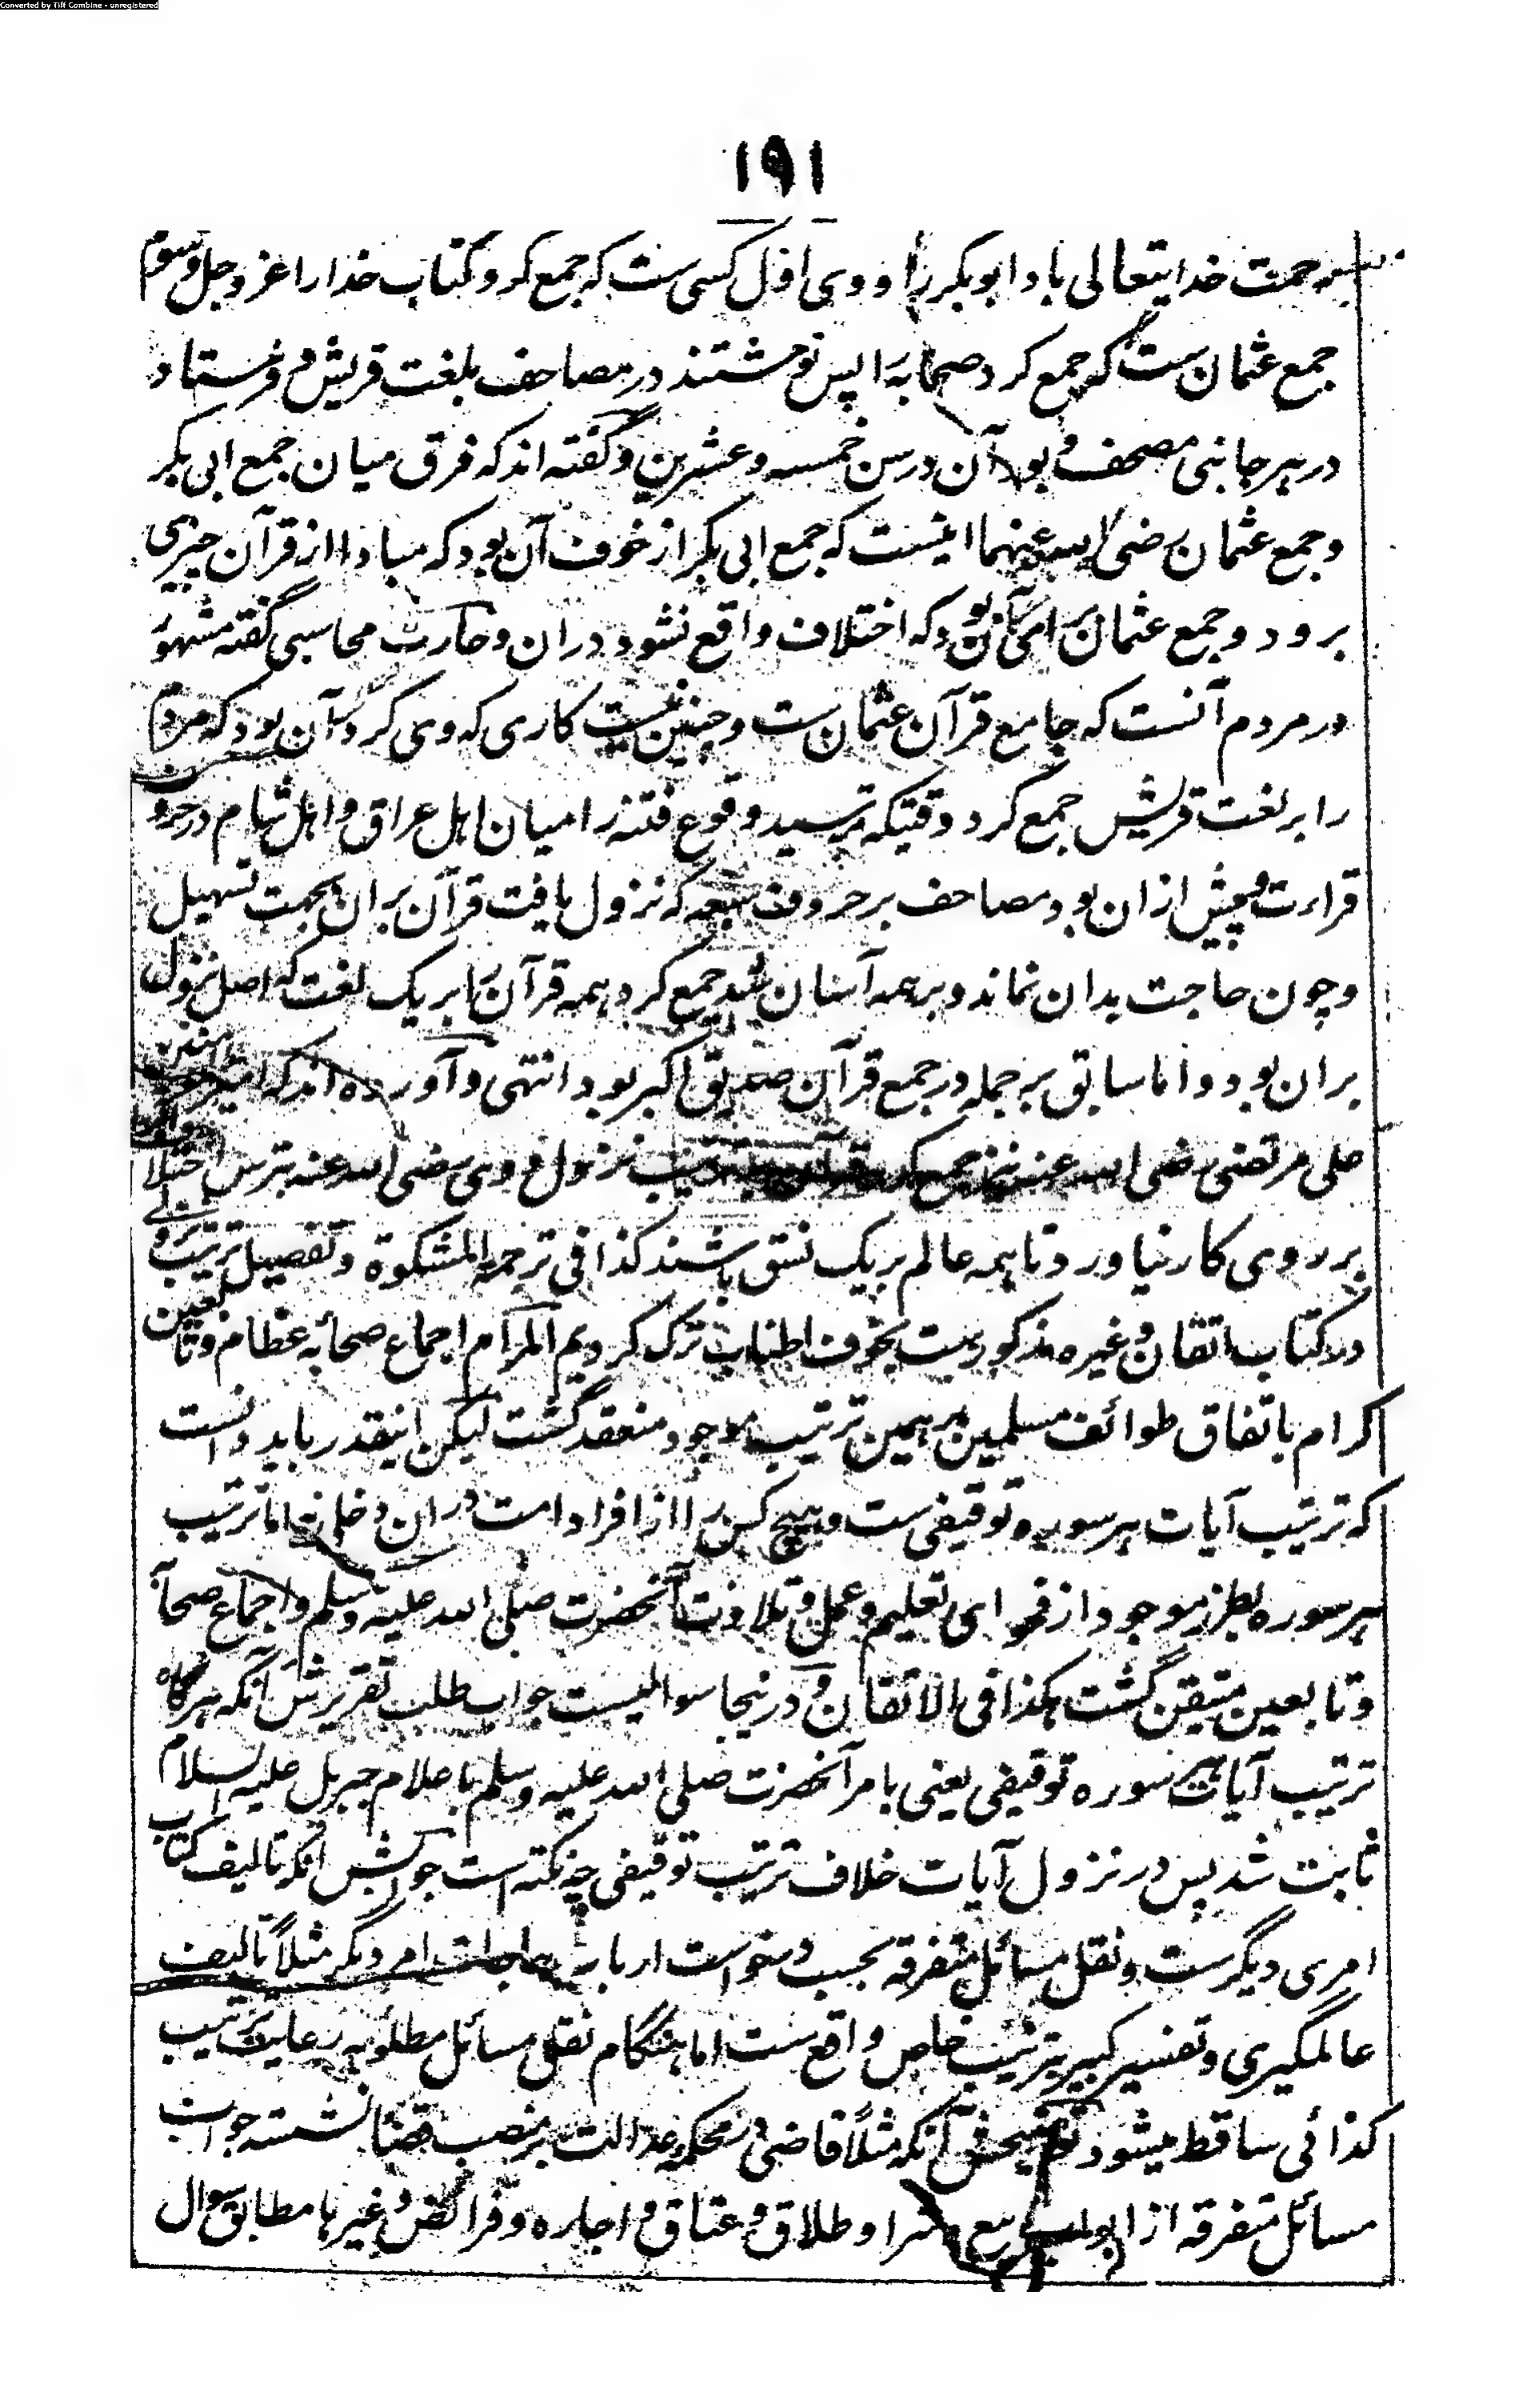 Converted by Tiff Combine - unregistered
۱۹۱
رحمت خدایتعالی باد ابوبکر را و وی اول کسی ست که جمع کرد کتاب خدا را عز و جل و سوم
جمع عثمان ست که جمع کرد صحابه را پس نوشتند در مصاحف بلغت قریش و فرستاد
در هر جانبی مصحف و بود آن در سن خمسه و عشرین و گفته اند که فرق میان جمع ابی بکر
و جمع عثمان رضی الله عنهما اینست که جمع ابی بکر از خوف آن بود که مبادا از قرآن چیزی
برود و جمع عثمان برای آن بود که اختلاف واقع نشود دران و حارث محاسبی گفته مشهور
در مردم آنست که جامع قرآن عثمان ست و چنین نیست کاری که وی کرد آن بود که مردم
را بر لغت قریش جمع کرد وقتیکه ترسید وقوع فتنه را میان اهل عراق و اهل شام در حروف
قراءت و پیش ازان بود مصاحف بر حروف سبعه که نزول یافت قرآن بران بجهت تسهیل
و چون حاجت بدان نماند و برهمه آسان شد جمع کرد همه قرآن را بر یک لغت که اصل نزول
بران بود و اما سابق بر جمله در جمع قرآن صدیق اکبر بود انتهی و آورده اند که امیر المؤمنین
علی مرتضی رضی الله عنه نیز جمع کرد قرآن بترتیب نزول و وی رضی الله عنه بترس اختلاف
بر روی کار نیاورد تا همه عالم بر یک نسق باشند کذا فی ترجمة المشکوة و تفصیل ترتیب
در کتاب اتقان و غیره مذکور ست بخوف اطناب ترک کردیم المرام اجماع صحابه عظام و تابعین
کرام باتفاق طوائف مسلمین بر همین ترتیب موجود منعقد گشت لیکن اینقدر باید دانست
که ترتیب آیات هر سوره توقیفی ست و هیچ کس را از افراد امت دران دخل نه اما ترتیب
هر سوره بطرز موجود از فحوای تعلیم و عمل و تلاوت آنحضرت صلی الله علیه وسلم و اجماع صحابه
و تابعین متیقن گشت هکذا فی الاتقان و درینجا سوالیست جواب طلب تقریرش آنکه هر گاه
ترتیب آیات هر سوره توقیفی یعنی بامر آنحضرت صلی الله علیه وسلم باعلام جبریل علیه السلام
ثابت شد پس در نزول آیات خلاف ترتیب توقیفی چه نکته است جوابش آنکه تالیف کتاب
امری دیگرست و نقل مسائل متفرقه بحسب درخواست ارباب حاجات امر دیگر مثلاً تالیف
عالمگیری و تفسیر کبیر بترتیب خاص واقع ست اما هنگام نقل مسائل مطلوبه رعایت ترتیب
کذائی ساقط میشود توضیحش آنکه مثلاً قاضی در محکمه عدالت بر منصب قضا نشسته جواب
مسائل متفرقه از ابواب بیع و شرا و طلاق و عتاق و اجاره و فرائض و غیرها مطابق سوال